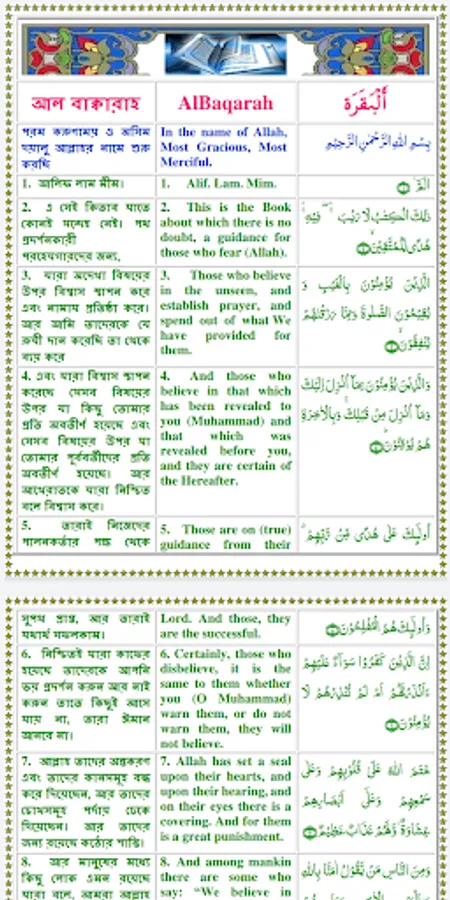 আল বাক্বারাহ
AlBaqarah
أَلْبَقَرَة
পরম করুণাময় ও অসিম
দয়ালু আল্লাহর নামে শুরু
করছি
In the name of Allah,
Most Gracious, Most
Merciful.
بِسْمِ اللهِ الرَّحْمٰنِ الرَّحِيْمِ
1. আলিফ লাম মীম।
1. Alif. Lam. Mim.
الٓمّٓ
2. এ সেই কিতাব যাতে
কোনই সন্দেহ নেই। পথ
প্রদর্শনকারী
পরহেযগারদের জন্য,
2. This is the Book
about which there is no
doubt, a guidance for
those who fear (Allah).
ذٰلِكَ الْكِتٰبُ لَا رَيْبَ ۛ فِيْهِ ۛ
هُدًى لِّلْمُتَّقِيْنَ
3. যারা অদেখা বিষয়ের
উপর বিশ্বাস স্থাপন করে
এবং নামায প্রতিষ্ঠা করে।
আর আমি তাদেরকে যে
রুযী দান করেছি তা থেকে
ব্যয় করে
3. Those who believe
in the unseen, and
establish prayer, and
spend out of what We
have provided for
them.
الَّذِيْنَ يُؤْمِنُوْنَ بِالْغَيْبِ وَ
يُقِيْمُوْنَ الصَّلٰوةَ وَمِمَّا رَزَقْنٰهُمْ
يُنْفِقُوْنَ
4. এবং যারা বিশ্বাস স্থাপন
করেছে সেসব বিষয়ের
উপর যা কিছু তোমার
প্রতি অবতীর্ণ হয়েছে এবং
সেসব বিষয়ের উপর যা
তোমার পূর্ববর্তীদের প্রতি
অবতীর্ণ হয়েছে। আর
আখেরাতকে যারা নিশ্চিত
বলে বিশ্বাস করে।
4. And those who
believe in that which
has been revealed to
you (Muhammad) and
that which was
revealed before you,
and they are certain of
the Hereafter.
وَالَّذِيْنَ يُؤْمِنُوْنَ بِمَآ اُنْزِلَ اِلَيْكَ
وَمَآ اُنْزِلَ مِنْ قَبْلِكَ ۚ وَبِالْاٰخِرَةِ
هُمْ يُوْقِنُوْنَ
5. তারাই নিজেদের
পালনকর্তার পক্ষ থেকে
5. Those are on (true)
guidance from their
اُولٰٓئِكَ عَلٰى هُدًى مِّنْ رَّبِّهِمْ ۗ
সুপথ প্রাপ্ত, আর তারাই
যথার্থ সফলকাম।
Lord. And those, they
are the successful.
وَاُولٰٓئِكَ هُمُ الْمُفْلِحُوْنَ
6. নিশ্চিতই যারা কাফের
হয়েছে তাদেরকে আপনি
ভয় প্রদর্শন করুন আর নাই
করুন তাতে কিছুই আসে
যায় না, তারা ঈমান
আনবে না।
6. Certainly, those who
disbelieve, it is the
same to them whether
you (O Muhammad)
warn them, or do not
warn them, they will
not believe.
اِنَّ الَّذِيْنَ كَفَرُوْا سَوَآءٌ عَلَيْهِمْ
ءَاَنْذَرْتَهُمْ اَمْ لَمْ تُنْذِرْهُمْ لَا
يُؤْمِنُوْنَ
7. আল্লাহ তাদের অন্তকরণ
এবং তাদের কানসমূহ বন্ধ
করে দিয়েছেন, আর তাদের
চোখসমূহ পর্দায় ঢেকে
দিয়েছেন। আর তাদের
জন্য রয়েছে কঠোর শাস্তি।
7. Allah has set a seal
upon their hearts, and
upon their hearing, and
on their eyes there is a
covering. And for them
is a great punishment.
خَتَمَ اللهُ عَلٰى قُلُوْبِهِمْ وَعَلٰى
سَمْعِهِمْ ۗ وَعَلٰٓى اَبْصَارِهِمْ
غِشَاوَةٌ ۖ وَّلَهُمْ عَذَابٌ عَظِيْمٌ
8. আর মানুষের মধ্যে
কিছু লোক এমন রয়েছে
যারা বলে, আমরা আল্লাহ
8. And among mankin
there are some who
say: “We believe in
وَمِنَ النَّاسِ مَنْ يَّقُوْلُ اٰمَنَّا بِاللهِ